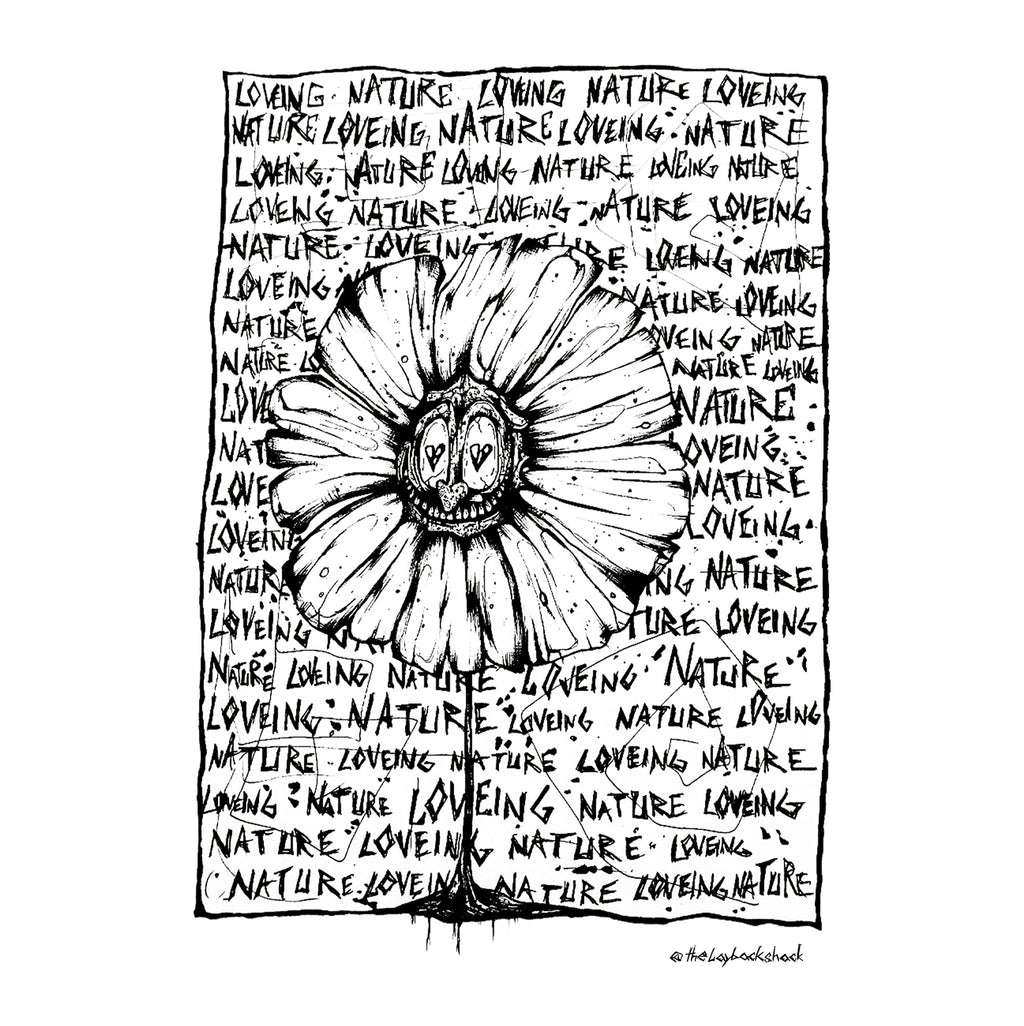 LOVEING NATURE LOVEING NATURE LOVEING
NATURE LOVEING NATURE LOVEING NATURE
LOVEING NATURE LOVEING NATURE LOVEING NATURE
LOVEING NATURE LOVEING NATURE LOVEING
NATURE LOVEING RE LOVEING NATURE
LOVEING NATURE LOVEING
NATURE OVEING NATURE
NATURE LO NATURE LOVEING
LOVE NATURE
NAT OVEING
LOVE NATURE
LOVEING LOVEING
NATURE NG NATURE
LOVEING TURE LOVEING
NATURE LOVEING NATURE LOVEING NATURE
LOVEING NATURE LOVEING NATURE LOVEING
NATURE LOVEING NATURE LOVEING NATURE
LOVEING NATURE LOVEING NATURE LOVEING
NATURE LOVEING NATURE LOVEING
NATURE LOVEIN NATURE LOVEING NATURE
@thelaybackshack